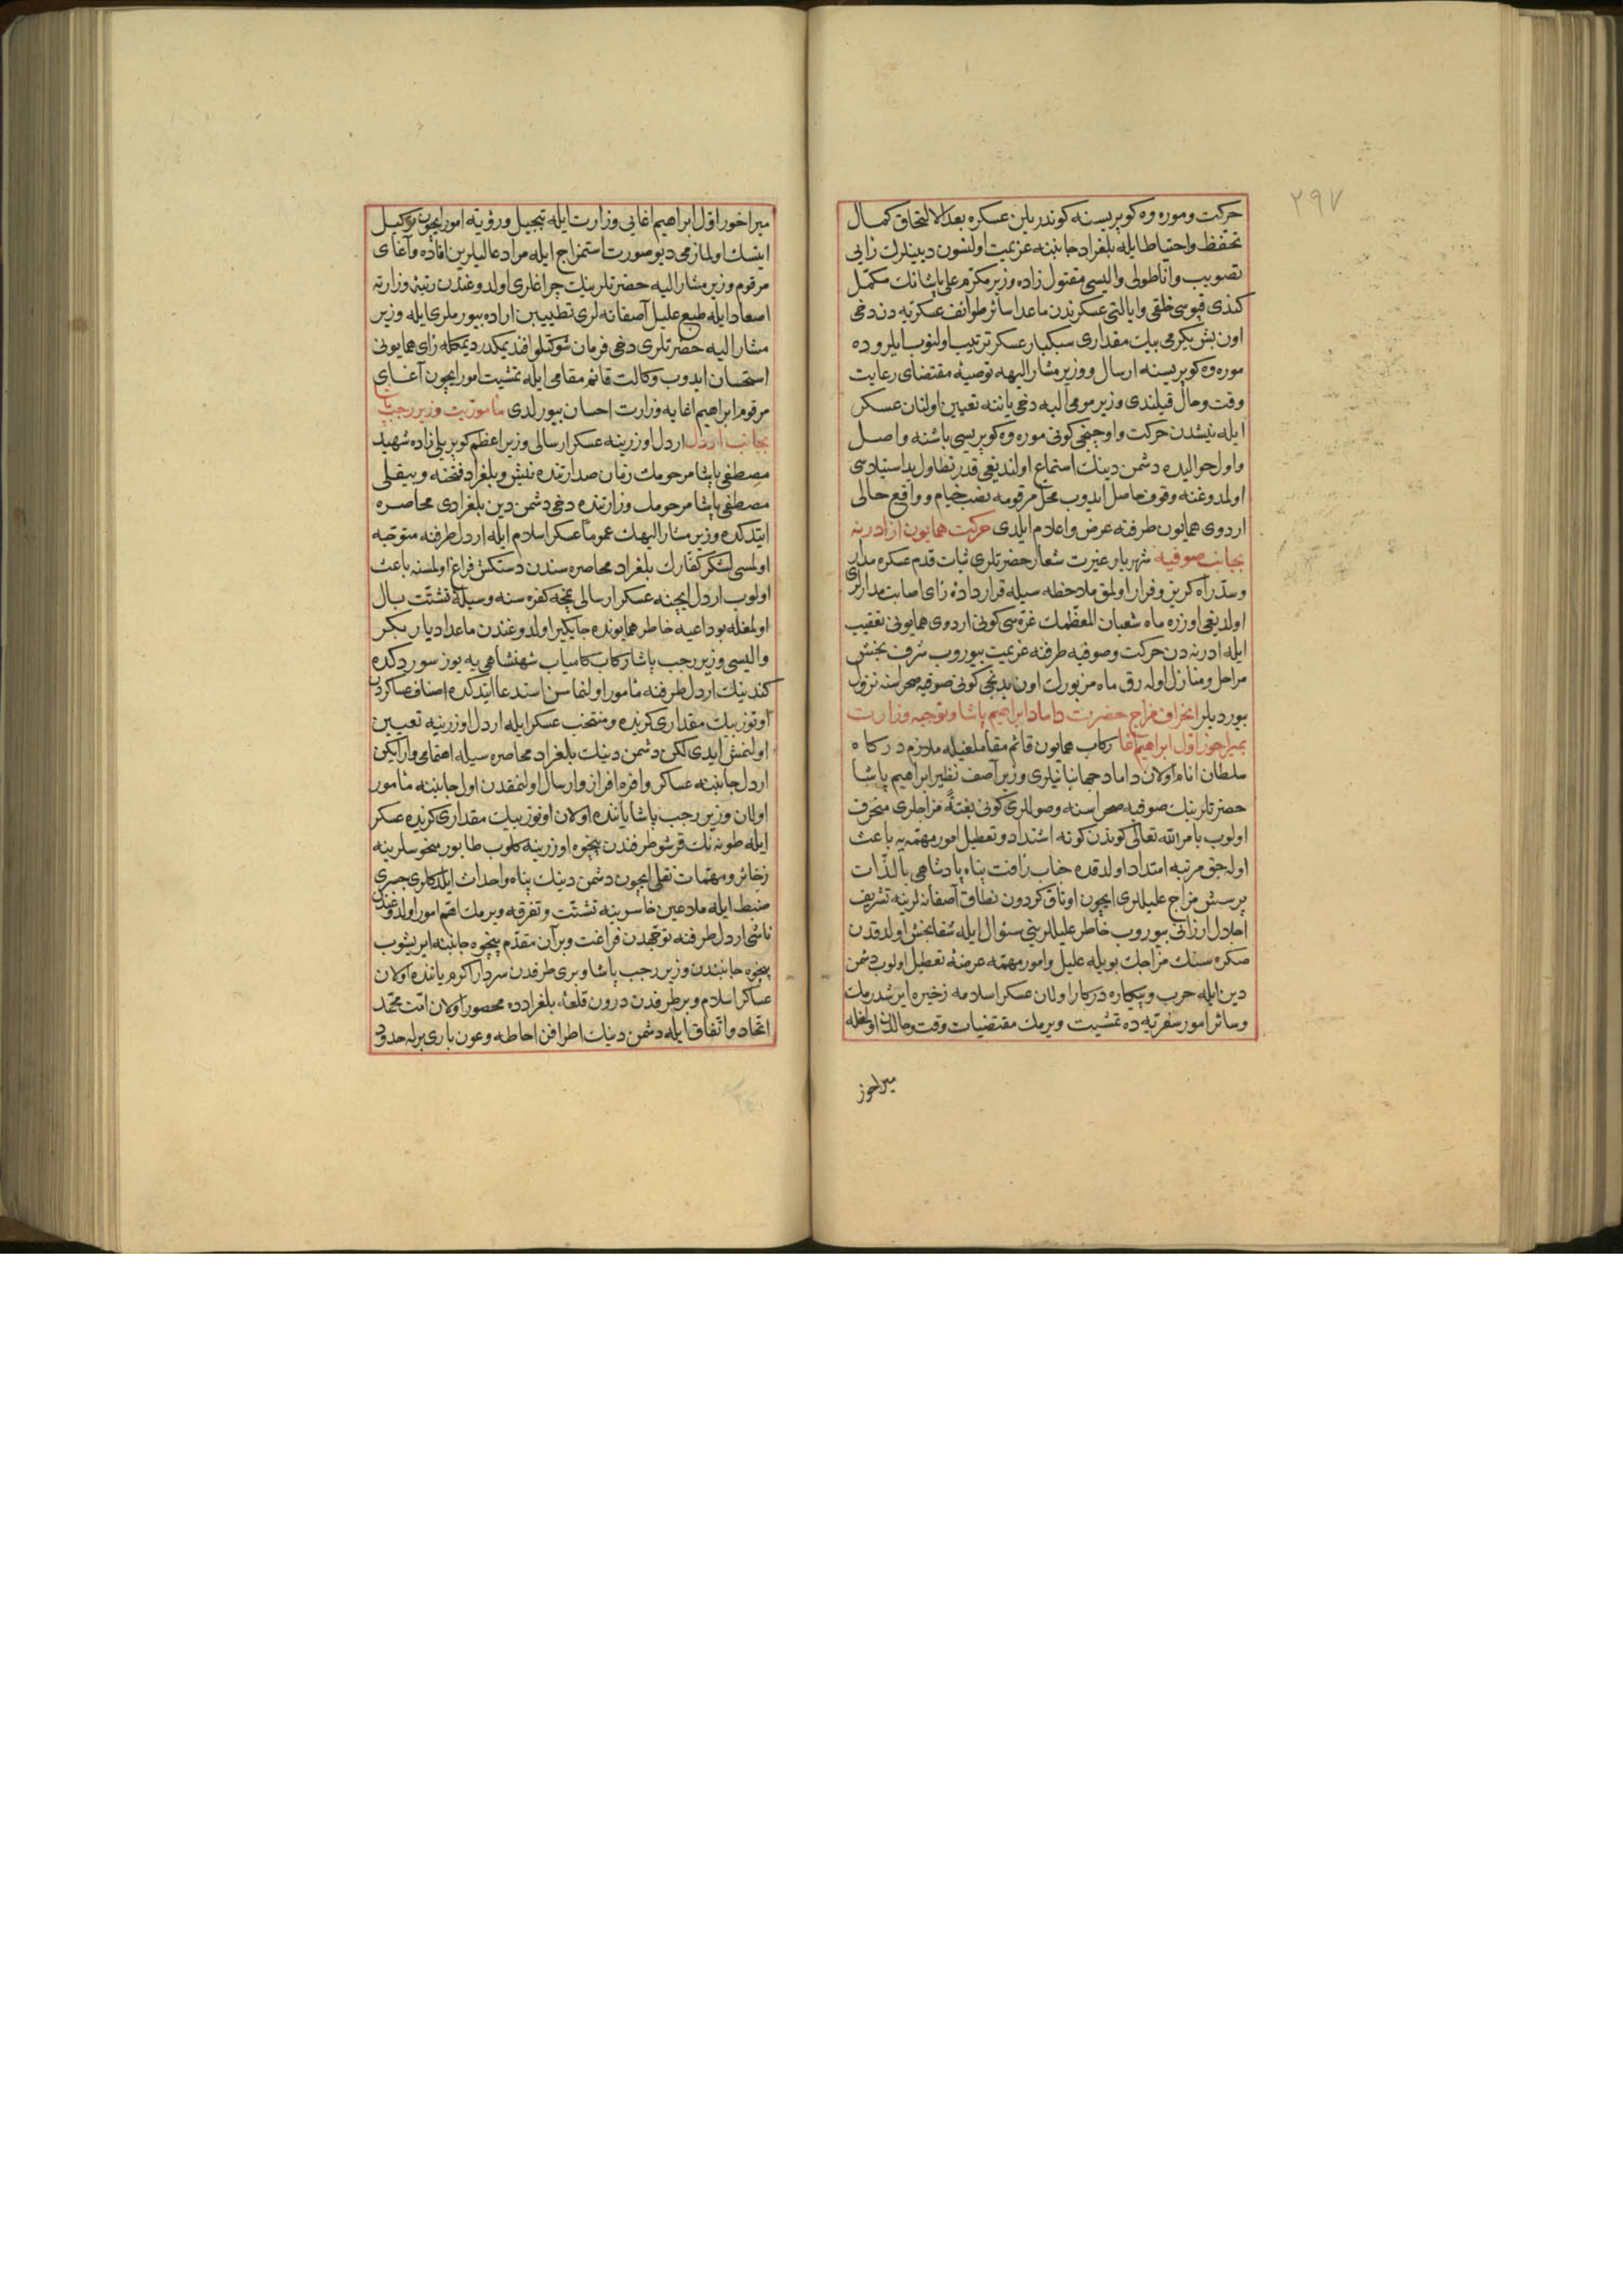 ٢٩٧
حركت و موره وه كوپريسنه كوندريلن عسكره بعد الالتحاق كمال
تحفظ و احتياط ايله بلغراد جانبنه عزيمت اولنسون ديينلرك رأيی
تصويب و اناطولی واليسی مقتول زاده وزير مكرم علی پاشانك مكمل
كندی قپوسی خلقی و ايالتی عسكرندن ماعدا سائر طوائف عسكريه دن دخی
اون بش يكرمی بيك مقداری سبكبار عسكر ترتيب اولنوب ايلروده
موره وه كوپريسنه ارسال و وزير مشار اليهه توصيهٔ مقتضای رعايت
وقت و حال قيلندی وزير مومی اليه دخی ياننه تعيين اولنان عسكر
ايله نيشدن حركت و اوچنجی كونی موره وه كوپريسی باشنه واصل
و اول حواليده دشمن دينك استماع اولنديغی قدر تطاول يد استيلاسی
اولمدوغنه وقوف حاصل ايدوب محل مرقومه نصب خيام و واقع حالی
اردوی همايون طرفنه عرض و اعلام ايلدی حركت همايون از ادرنه
بجانب صوفيه شهريار غيرت شعار حضرتلری ثبات قدم عسكره مدار
و سد راه كريز و فرار اولمق ملاحظه سيله قرار دادهٔ رأی اصابت مدارلری
اولديغی اوزره ماه شعبان المعظمك غره سی كونی اردوی همايونی تعقيب
ايله ادرنه دن حركت و صوفيه طرفنه عزيمت بيوروب شرف بخش
مراحل و منازل اوله رق ماه مزبورك اون يدنجی كونی صوفيه صحراسنه نزول
بيورديلر انحراف مزاج حضرت داماد ابراهيم پاشا و توجيه وزارت
بميراخور اول ابراهيم اغا ركاب همايون قائم مقاملغيله ملازم دركاه
سلطان انام اولان داماد جهانبانيلری وزير آصف نظير ابراهيم پاشا
حضرتلرينك صوفيه صحراسنه وصوللری كونی بغتةً مزاجلری منحرف
اولوب بامر الله تعالی كوندن كونه اشتداد و تعطيل امور مهمه يه باعث
اوله جق مرتبه امتداد اولدقده جناب رأفت پناه پادشاهی بالذات
پرسش مزاج عليللری ايچون اوتاق كردون نطاق آصفانه لرينه تشريف
اجلال ارزانی بيوروب خاطر عليللرينی سئوال ايله شفابخش اولدقدن
صكره سنك مزاجك بويله عليل و امور مهمه عرضهٔ تعطيل اولوب دشمن
دين ايله حرب و پيكاره دركار اولان عسكر اسلامه زخيره ايرشدرمك
و سائر امور سفريه ده تمشيت ويرمك مقتضيات وقت و حالدن اولمغله
ميراخور
ميراخور اول ابراهيم اغايی وزارت ايله تبجيل و رؤيت امور ايچون توكيل
ايتسك اولمازمی ديو صورت استمزاج ايله مراد عاليلرين افاده و آغای
مرقوم وزير مشار اليه حضرتلرينك چراغلری اولدوغندن رتبهٔ وزارته
اصعاد ايله طبع عليل آصفانه لری تطييبن اراده بيورملری ايله وزير
مشار اليه حضرتلری دخی فرمان شوكتلو افنديمكدر ديمكله رأی همايونی
استحسان ايدوب وكالت قائم مقامی ايله تمشيت امور ايچون آغای
مرقوم ابراهيم اغايه وزارت احسان بيورلدی مأموريت وزير رجب پاشا
بجانب اردل اردل اوزرينه عسكر ارسالی وزير اعظم كوپريلی زاده شهيد
مصطفی پاشا مرحومك زمان صدارتنده نيش و بلغراد فتحنه و بيقلی
مصطفی پاشا مرحومك وزارتنده دخی دشمن دين بلغرادی محاصره
ايتدكده وزير مشار اليهك عموماً عسكر اسلام ايله اردل طرفنه متوجه
اولمسی لشكر كفارك بلغراد محاصره سندن دستكش فراغ اولمسنه باعث
اولوب اردل ايچنه عسكر ارسالی نمچه كفره سنه وسيلهٔ تشتت بال
اولمغله بو داعيه خاطر همايونده جايكير اولدوغندن ماعدا ديار بكر
واليسی وزير رجب پاشا ركاب كامياب شهنشاهی يه يوز سوردكده
كندينك اردل طرفنه مأمور اولنماسن استدعا ايتدكده اصناف عساكردن
اوتوز بيك مقداری كزيده و منتخب عسكر ايله اردل اوزرينه تعيين
اولنمش ايدی لكن دشمن دينك بلغراد محاصره سيله اهتمامی وار ايكن
اردل جانبنه عساكر وافره افراز و ارسال اولنمقدن اول جانبه مأمور
اولان وزير رجب پاشا ياننده اولان اوتوز بيك مقداری كزيده عسكر
ايله طونه نك قرشو طرفندن پنچوه اوزرينه كلوب طابور منحوسلرينه
زخائر و مهمات نقلی ايچون دشمن دينك بناء و احداث ايلدكلری جسری
ضبط ايله ملاعين خاسرينه تشتت و تفرقه ويرمك اهم امور اولدوغندن
ناشی اردل طرفنه توجهدن فراغت و بر آن مقدم پنچوه جانبنه ايريشوب
پنچوه جانبندن وزير رجب پاشا و بری طرفدن سردار اكرم ياننده اولان
عساكر اسلام و بر طرفدن درون قلعهٔ بلغرادده محصور اولان امت محمد
اتحاد و اتفاق ايله دشمن دينك اطرافن احاطه و عون باری برله حدود